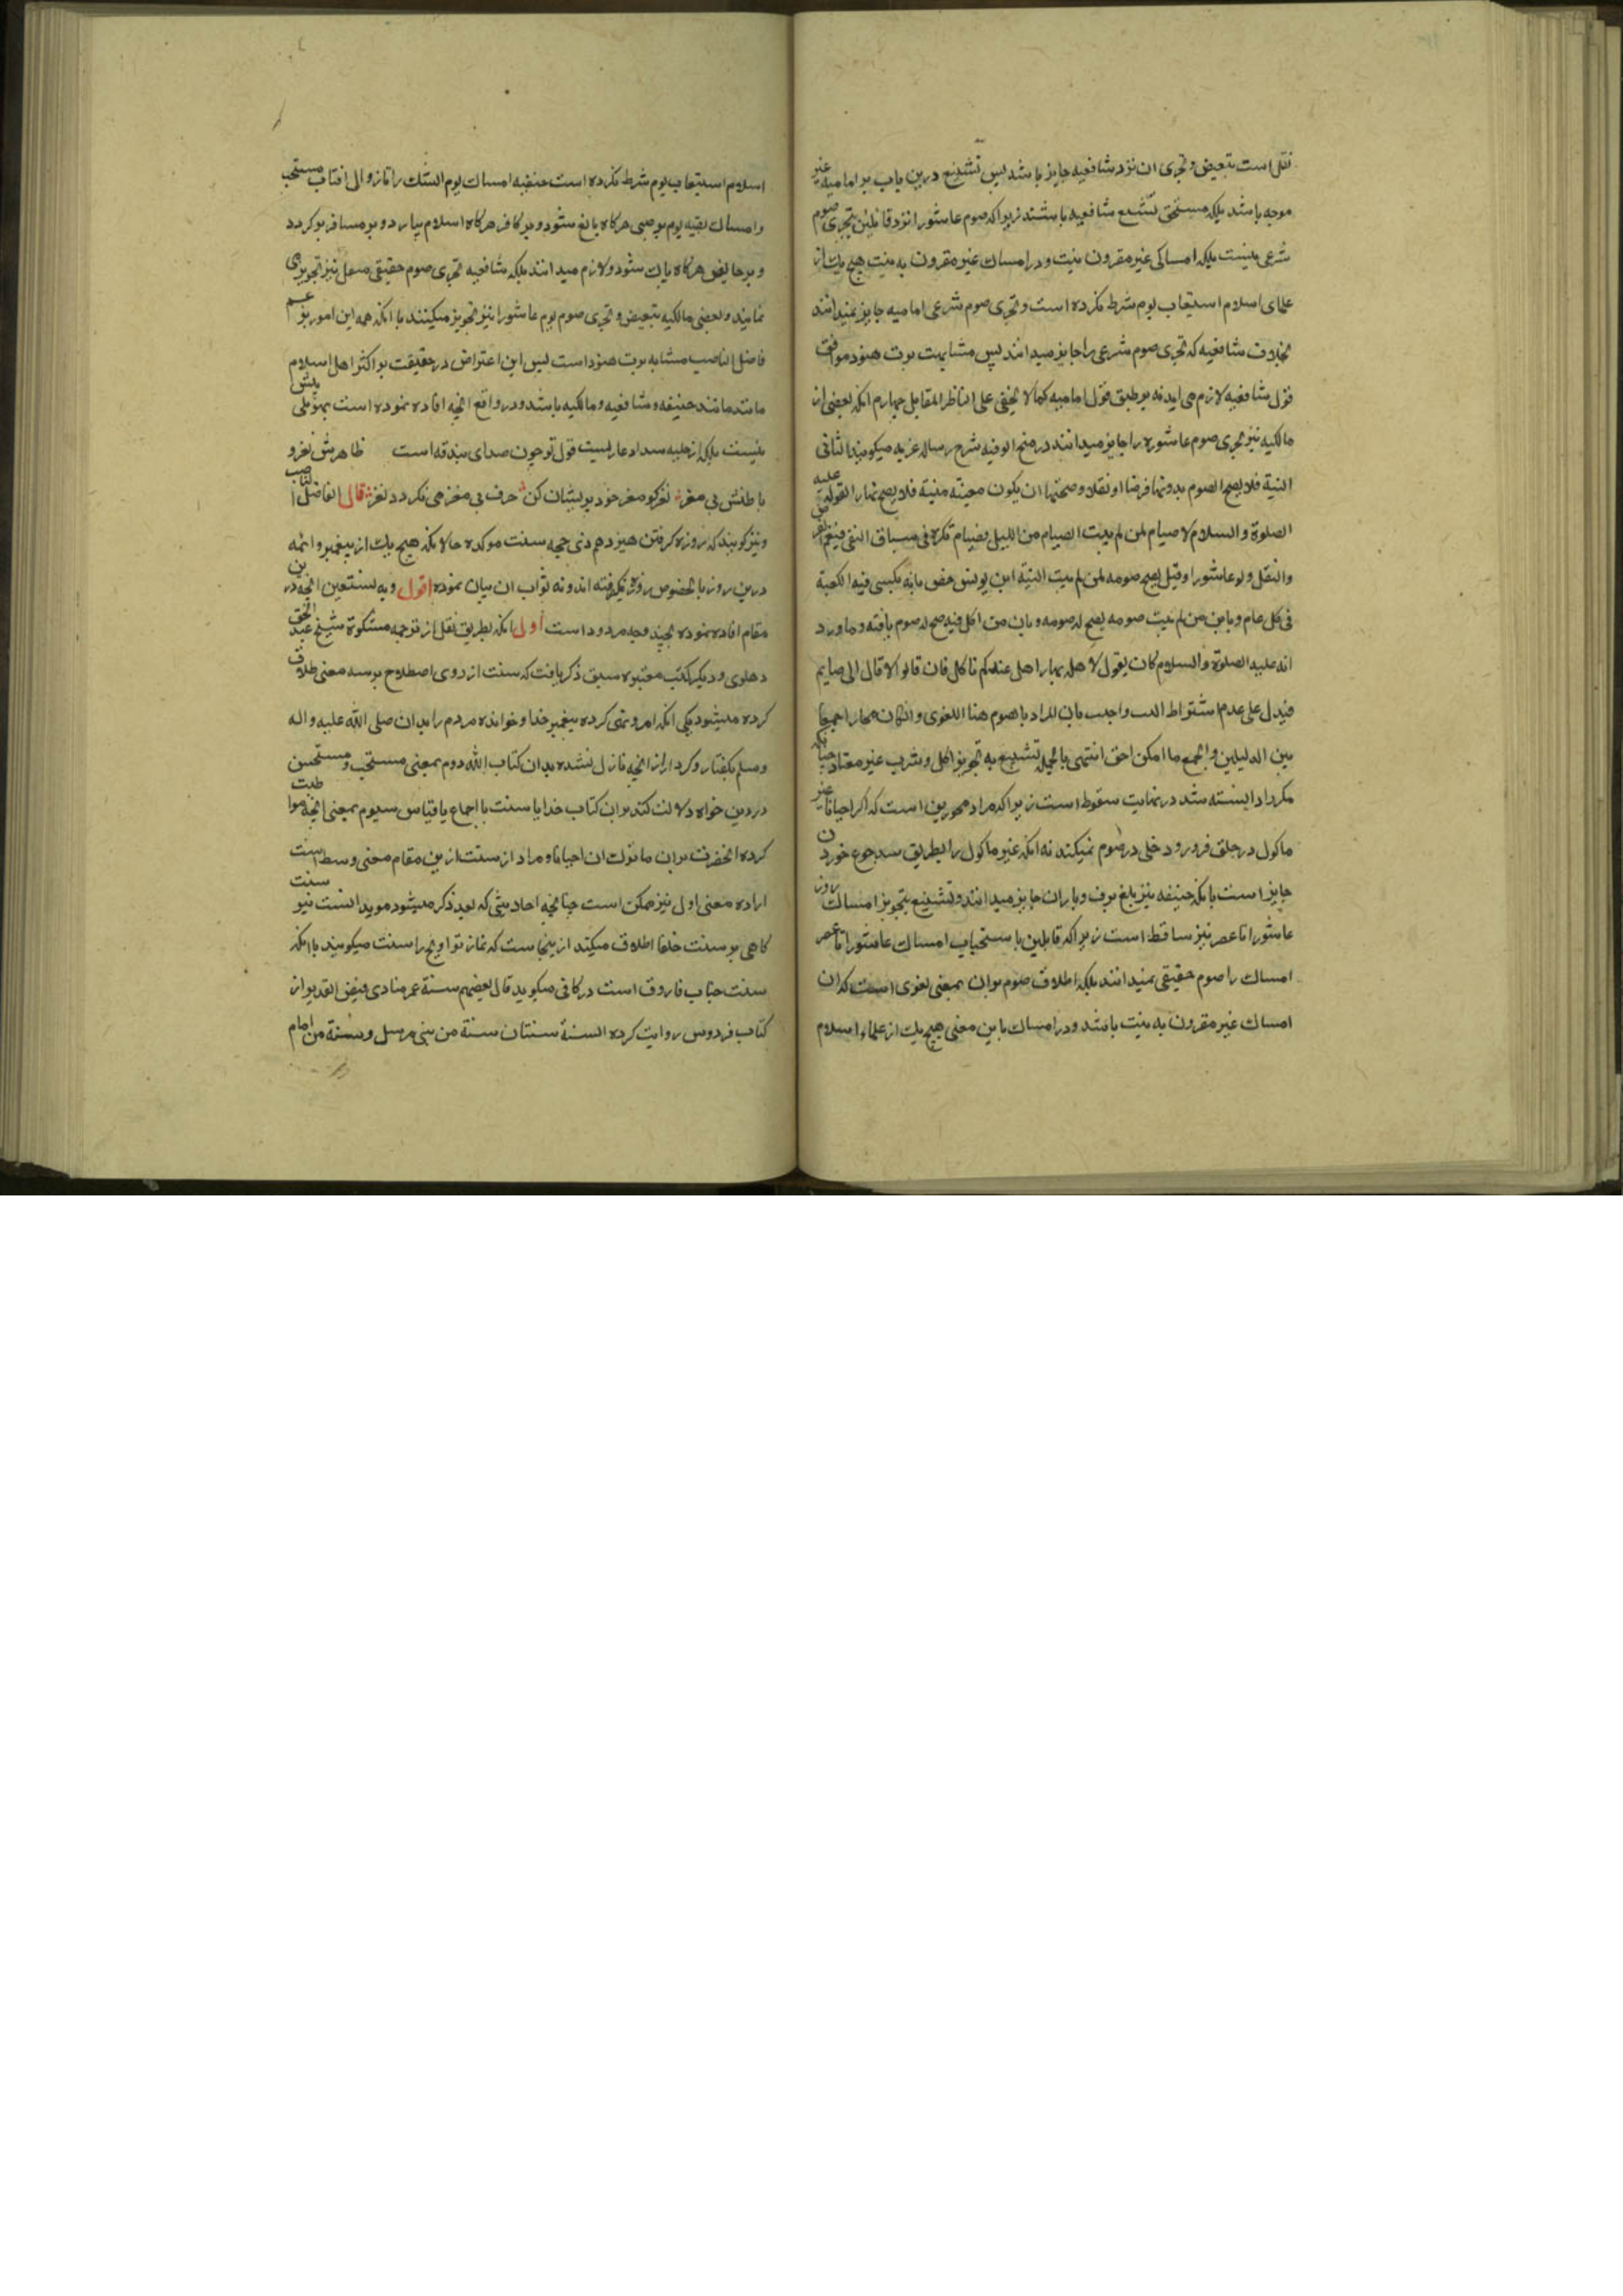 نقل است تبعیض و تجری ان نزد شافعیه جایز باشد پس تشنیع درین باب بر امامیه غیر
موجه باشد بلکه مستحق تشنیع شافعیه باشند زیراکه صوم عاشورا نزد قائلین بتجری صوم
شرعی نیست بلکه امساکی غیر مقرون بنیت و در امساک غیر مقرون به نیت هیچ یک از
علمای اسلام استیعاب یوم شرط نکرده است و تجری صوم شرعی امامیه جایز نمیدانند
بخلاف شافعیه که تجری صوم شرعی را جایز میدانند پس مشابهت برت هنود موافق
قول شافعیه لازم می اید نه بر طبق قول امامیه کما لا یخفی علی الناظر المقابل چهارم انکه بعضی از
مالکیه نیز تجری صوم عاشوره را جایز میدانند در منح الوفیه شرح رساله عزیه میکوید الثانی
النیة فلا یصح الصوم بدونها فرضا او نفلا و صحتها ان یکون معینة مبیتة فلا یصح نهارا لقوله علیه
الصلوة و السلام لا صیام لمن لم یبیت الصیام من اللیل فصیام نکرة فی سیاق النفی فیعم الفرض
والنفل ولو عاشورا وقیل یصح صومه لمن لم یبیت النیة ابن یونس خص بانه یکسی فیه الکعبة
فی کل عام و بان من لم یبیت صومه یصح له صومه و بان من اکل فیه صح له صوم باقیه و ما ورد
انه علیه الصلوة والسلام کان یقول لاهله نهارا هل عندکم ما اکل فان قالوا لا قال انی صایم
فیدل علی عدم اشتراط المبیت واجیب بان المراد بالصوم هنا اللغوی وان کان مجازا جمعا
بین الدلیلین والجمع ما امکن احق انتهی بالجمله تشنیع به تجویز اکل و شرب غیر معتاد چنانکه
مکرر دانسته شد در نهایت سقوط است زیراکه مراد مجوزین است که اگر احیانا غیر
ماکول در حلق فرو رود خللی در صوم نمیکند نه انکه غیر ماکول را بطریق سد جوع خوردن
جایز است با انکه حنیفه نیز بلغ برف و باران جایز میدانند و تشنیع بتجویز امساک روز
عاشورا تا عصر نیز ساقط است زیراکه قایلین باستحباب امساک عاشورا تا عصر
امساک را صوم حقیقی نمیدانند بلکه اطلاق صوم بران بمعنی لغوی است که ان
امساک غیر مقرون به نیت باشد و در امساک باین معنی هیچ یک از علماء اسلام
اسلام استیعاب یوم شرط نکرده است حنفیه امساک یوم الشک را تا زوال افتاب مستحب
وامساک بقیه یوم بر صبی هرکاه بالغ شود و بر کافر هرکاه اسلام بیارد و بر مسافر بر کردد
و بر حایض هرکاه پاک شود ولازم میدانند بلکه شافعیه تجری صوم حقیقی نفل نیز تجویز می
نمایند و بعضی مالکیه تبعیض و تجری صوم یوم عاشورا نیز تجویز میکنند با انکه همه این امور بزعم
فاضل الناصب مشابه برت هنود است پس این اعتراض در حقیقت بر اکثر اهل اسلام
مانند حنیفه و شافعیه و مالکیه باشد و در واقع انچه افاده نموده است بمؤملی بیش
نیست بلکه از حلیه سداد عاریست قول تو چون صدای بندقه است ظاهرش نغز و
باطنش بی مغز نغز کو مغز خود پریشان کن حرف بی مغز می نکردد نغز قال الفاضل الناصب
ونیز کویند که روزه کرفتن هیزدهم ذی حجه سنت موکده حالانکه هیچ یک از پیغمبر و ائمه
درین روز بالخصوص روزه نکرفته اند و نه ثواب ان بیان نموده اقول وبه نستعین انچه درین
مقام افاده نموده بچند وجه مردود است اول انکه بطریق نقل از ترجمه مشکوة شیخ عبد الحق
دهلوی و دیگر کتب معتبره سبق ذکر یافت که سنت از روی اصطلاح بر سه معنی اطلاق
کرده میشود یکی انکه امر و نهی کرده پیغمبر خدا و خوانده مردم را بدان صلی الله علیه واله
وسلم بکفتار و کردار از انچه نازل نشده بدان کتاب الله دوم بمعنی مستحب و مستحسن
در دین خواه دلالت کند بران کتاب خدا یا سنت یا اجماع یا قیاس سیوم بمعنی انچه مواظبت
کرده انحضرت بران ما ترک ان احیانا و مراد از سنت ازین مقام معنی وسط است
اراده معنی اول نیز ممکن است چنانچه احادیثی که بعد ذکر میشود موید انست نیز سنت
کاهی بر سنت خلفا اطلاق میکند از ینجاست که نماز تراویح را سنت میکویند با انکه
سنت جناب فاروق است در کافی میکوید قال بعضهم سنة عمر منادی فیض القدیر از
کتاب فردوس روایت کرده السنة سنتان سنة من نبی مرسل وسنة من امام